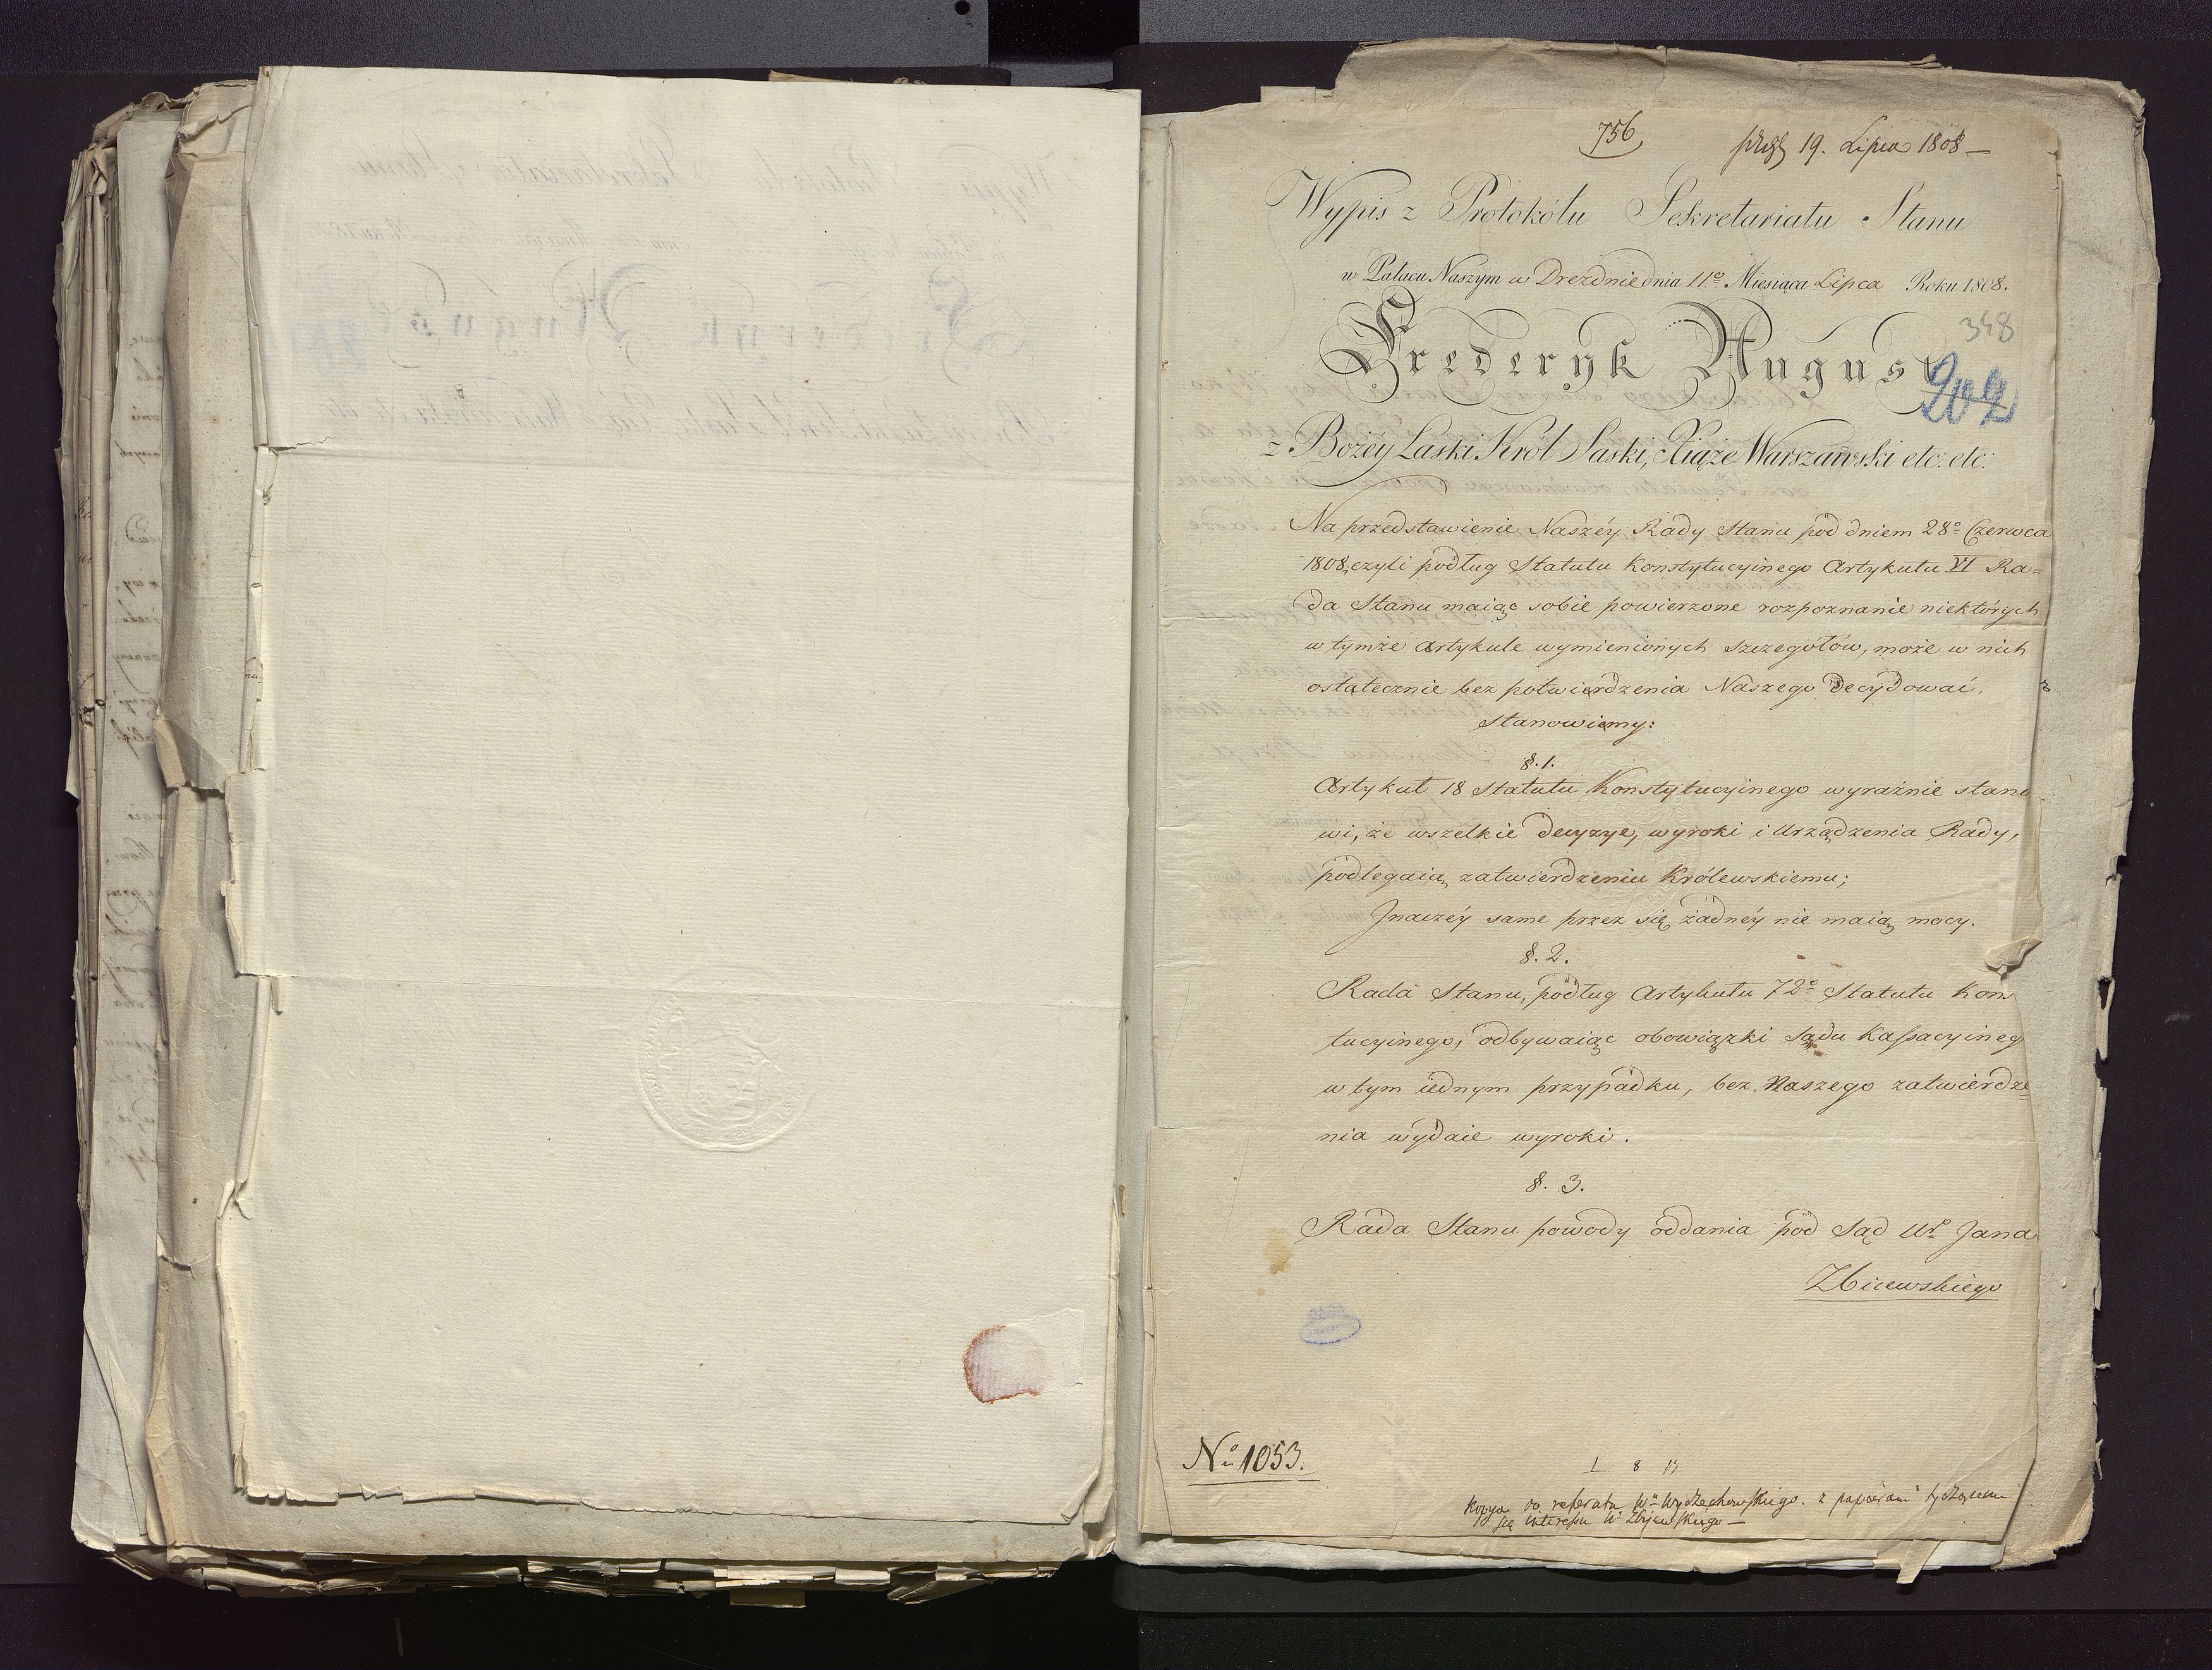 756
19. Lipca 1808 —
Wypis z Protokółu Sekretariatu Stanu
w Pałacu Naszym w Dreznie dnia 11º Miesiąca Lipca Roku 1808.
348
Frederyk August
202
z Bożey Łaski Król Saski, Xiąże Warszawski etc: etc:
Na przedstawienie Naszéy Rady Stanu pod dniem 28º Czerwca
1808, czyli podług Statutu Konstytucyinego Artykułu VI Ra=
da Stanu maiąc sobie powierzone rozpoznanie niektórych
w tymże Artykule wymienionych szczegółów, może w nich
ostatecznie bez potwierdzenia Naszego decydować.
Stanowiemy:
§. 1.
Artykuł 18 Statutu Konstytucyinego wyraźnie stano
wi, że wszelkie decyzye, wyroki i Urządzenia Rady,
podlegaią zatwierdzeniu Królewskiemu;
Jnaczéy same przez się żadnéy nie maią mocy.
§. 2.
Rada Stanu, podług Artykułu 72º Statutu Kons
tucyinego, odbywaiąc obowiązki Sądu Kassacyineg
w tym iednym przypadku, bez Naszego zatwierdze=
nia wydaie wyroki.
§. 3.
Rada Stanu powody oddania pod Sąd Urº Jana
Zbiiewskiego
Nº 1053.
Kopya do referatu Wº Wyczechowskiego. z papierami tyczącemi
się interesu Uº Zbijewskiego —